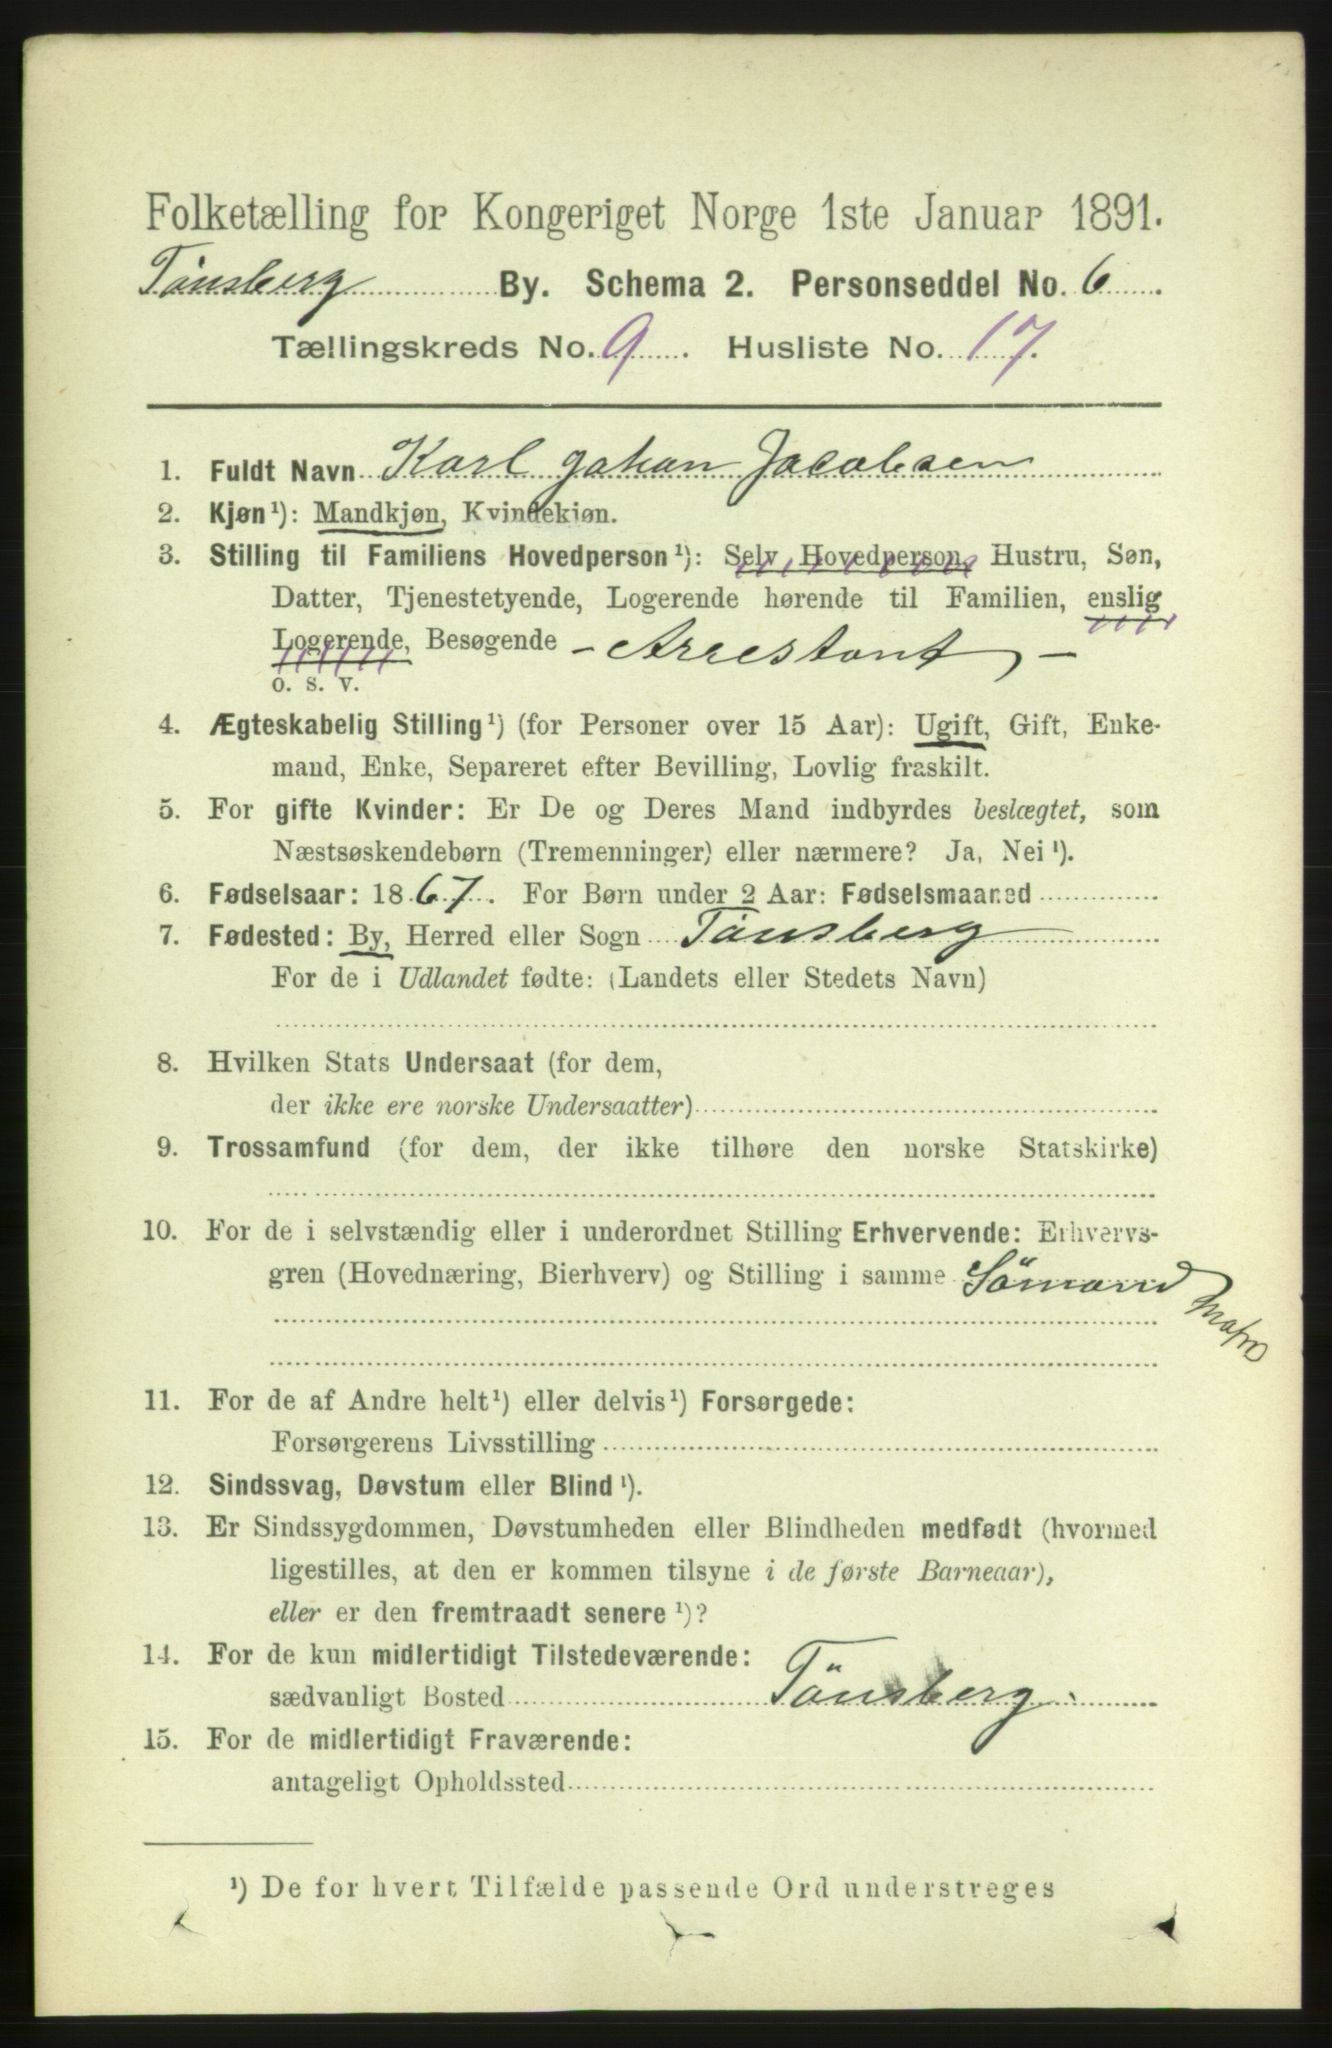 Folketælling for Kongeriget Norge 1ste Januar 1891.
Tönsberg By. Schema 2. Personseddel No. 6.
Tællingskreds No. 9. Husliste No. 17.
1. Fuldt Navn Karl Johan Jacobsen
2. Kjøn¹): Mandkjøn, Kvindekjøn.
3. Stilling til Familiens Hovedperson¹): Selv Hovedperson, Hustru, Søn,
Datter, Tjenestetyende, Logerende hørende til Familien, enslig
Logerende, Besøgende - Arrestant -
o. s. v.
4. Ægteskabelig Stilling¹) (for Personer over 15 Aar): Ugift, Gift, Enke-
mand, Enke, Separeret efter Bevilling, Lovlig fraskilt.
5. For gifte Kvinder: Er De og Deres Mand indbyrdes beslægtet, som
Næstsøskendebørn (Tremenninger) eller nærmere? Ja, Nei¹).
6. Fødselsaar: 1867. For Børn under 2 Aar: Fødselsmaaned
7. Fødested: By, Herred eller Sogn Tönsberg
For de i Udlandet fødte: (Landets eller Stedets Navn)
8. Hvilken Stats Undersaat (for dem,
der ikke ere norske Undersaatter)
9. Trossamfund (for dem, der ikke tilhøre den norske Statskirke)
10. For de i selvstændig eller i underordnet Stilling Erhvervende: Erhvervs-
gren (Hovednæring, Bierhverv) og Stilling i samme Sömand
11. For de af Andre helt¹) eller delvis¹) Forsørgede:
Forsørgerens Livsstilling
12. Sindssvag, Døvstum eller Blind¹).
13. Er Sindssygdommen, Døvstumheden eller Blindheden medfødt (hvormed
ligestilles, at den er kommen tilsyne i de første Barneaar),
eller er den fremtraadt senere¹)?
14. For de kun midlertidigt Tilstedeværende:
sædvanligt Bosted Tönsberg.
15. For de midlertidigt Fraværende:
antageligt Opholdssted
¹) De for hvert Tilfælde passende Ord understreges